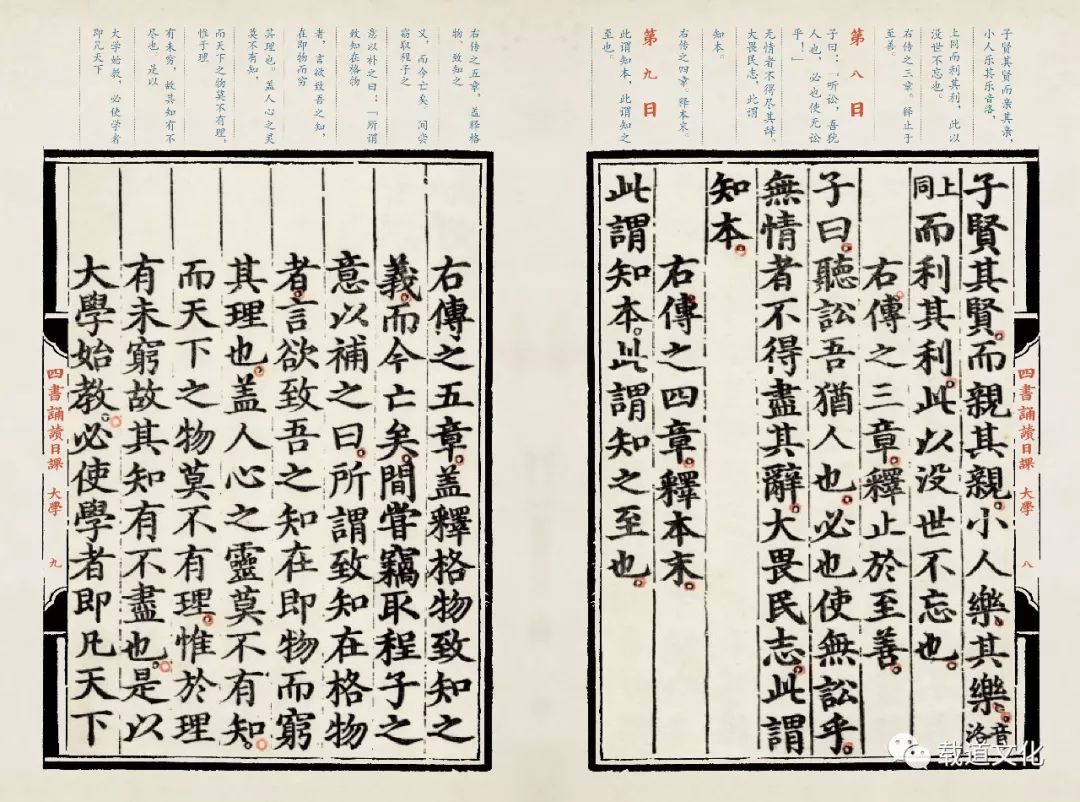 子贤其贤而亲其亲，
小人乐其乐音洛，
上同而利其利，此以
没世不忘也。
右传之三章。释止于
至善。
第八日
子曰：「听讼，吾犹
人也，必也使无讼
乎！」
无情者不得尽其辞。
大畏民志，此谓
知本。
右传之四章。释本末。
第九日
此谓知本，此谓知之
至也。
子賢其賢而親其親小人樂其樂音洛
上同而利其利此以没世不忘也
右傳之三章釋止於至善
子曰聽訟吾猶人也必也使無訟乎
無情者不得盡其辭大畏民志此謂
知本
右傳之四章釋本末
此謂知本此謂知之至也
四書誦讀日課 大學 八
右传之五章，盖释格
物、致知之
义，而今亡矣。间尝
窃取程子之
意以补之曰：「所谓
致知在格物
者，言欲致吾之知，
在即物而穷
其理也。盖人心之灵
莫不有知，
而天下之物莫不有理，
惟于理
有未穷，故其知有不
尽也，是以
大学始教，必使学者
即凡天下
右傳之五章蓋釋格物致知之
義而今亡矣間嘗竊取程子之
意以補之曰所謂致知在格物
者言欲致吾之知在即物而窮
其理也盖人心之靈莫不有知
而天下之物莫不有理惟於理
有未窮故其知有不盡也是以
大學始教必使學者即凡天下
四書誦讀日課 大學 九
载道文化